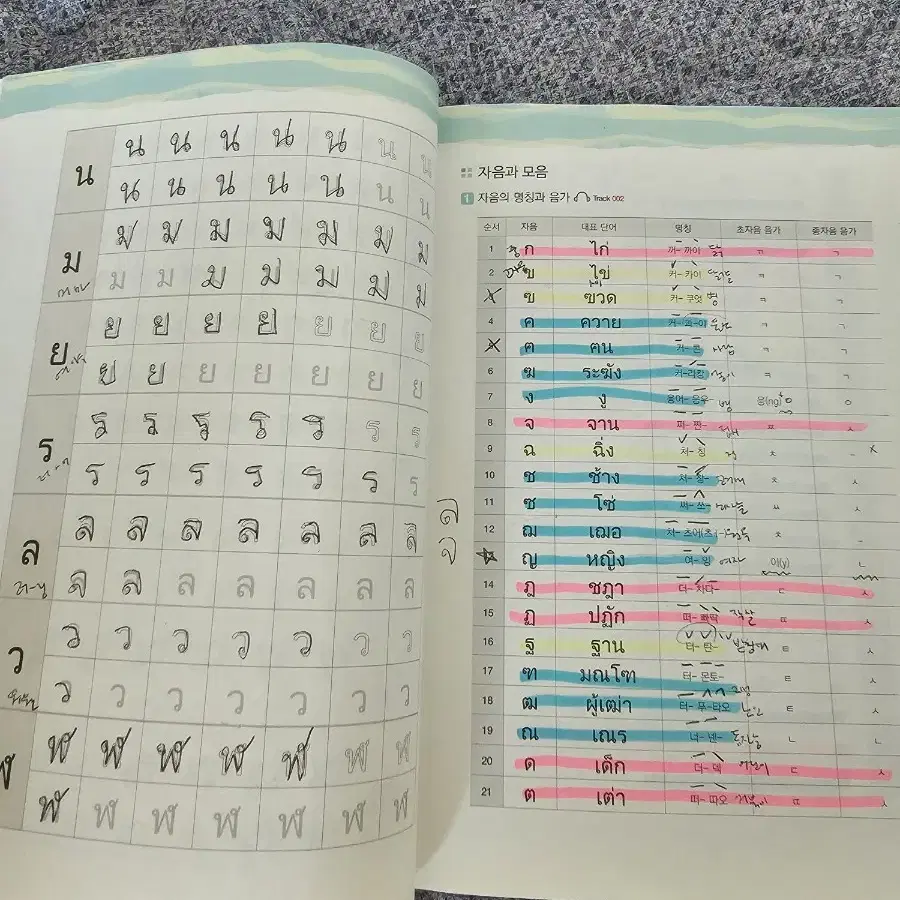 น น น น น น น น
น น น น น น น
ม ม ม ม ม ม ม ม
ม ม ม ม ม ม ม
ย ย ย ย ย ย ย ย
ย ย ย ย ย ย ย
ร ร ร ร ร ร ร ร
ร ร ร ร ร ร ร
ล ล ล ล ล ล ล ล
ล ล ล ล ล ล ล
ว ว ว ว ว ว ว ว
ว ว ว ว ว ว ว
ฬ ฬ ฬ ฬ ฬ ฬ ฬ ฬ
ฬ ฬ ฬ ฬ ฬ ฬ ฬ
자음과 모음
1 자음의 명칭과 음가 Track 002
순서 자음 대표 단어 명칭 초자음 음가 종자음 음가
1 ก ไก่ 꺼-까이 닭 ㄲ ㄱ
2 ข ไข่ 커-카이 ㅋ ㄱ
ฃ ฃวด 커-쿠엇 병 ㅋ ㄱ
4 ค ควาย ㅋ ㄱ
ฅ ฅน 커-콘 사람 ㅋ ㄱ
6 ฆ ระฆัง 커-라캉 ㅋ ㄱ
7 ง งู 응어-응우 뱀 응(ng) ㅇ
8 จ จาน 쩌-짠 접시 ㅉ ㅅ
9 ฉ ฉิ่ง 처-칭 ㅊ - x
10 ช ช้าง 처-창 ㅊ ㅅ
11 ซ โซ่ 써-쏘 ㅆ ㅅ
12 ฌ เฌอ ㅊ -
ญ หญิง 여-잉 여자 이(y) ㄴ
14 ฎ ชฎา 더-차다- ㄷ ㅅ
15 ฏ ปฏัก 떠-빠딱 작살 ㄸ ㅅ
16 ฐ ฐาน 터-탄- 받침대 ㅌ ㅅ
17 ฑ มณโฑ 터-몬토- ㅌ ㅅ
18 ฒ ผู้เฒ่า 터-푸-타오 노인 ㅌ ㅅ
19 ณ เณร 너-넨- ㄴ ㄴ
20 ด เด็ก 더-덱 ㄷ ㅅ
21 ต เต่า 떠-따오 거북이 ㄸ ㅅ